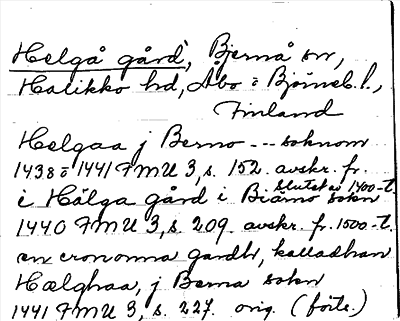 Helgå gård, Bjernå sn,
Halikko hd, Åbo o Björneb. l.,
Finland
Helgaa j Berno --- soknom
1438 o 1441 FMU 3, s. 152. avskr. fr.
slutet av 1400-t.
i Hälga gård i Biärno sokn
1440 FMU 3, s. 209. avskr. fr. 1500-t.
en cronona gardh, kalladhan
Hælghaa, j Berna sokn
1441 FMU 3, s. 227. orig. (forts.)